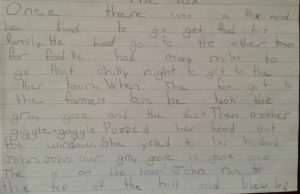 The fox
Once there was a fox and
he had to go get food his
family. He had go to the other town
for food. He had many miles to
go that chilly night to get to the
other town. When The fox got to
the farmers bin. he took the
gray goose and the duck. Then mother
giggle-goggle Popped her head out
the window. She yelled to her husband
John, John our gray goose is gone and
The is on the town! John ran to
the top of the hill and blew his